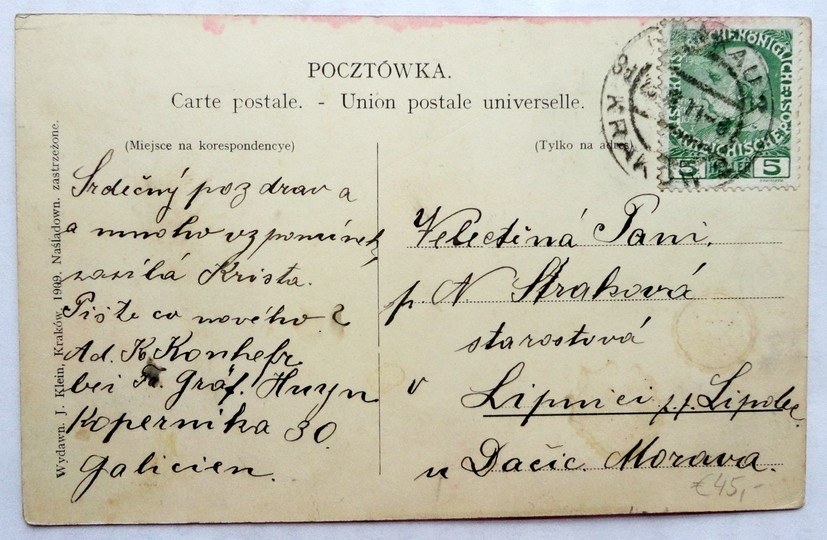 POCZTÓWKA.
Carte postale. - Union postale universelle.
(Miejsce na korespondencye)
(Tylko na adres
Wydawn. J. Klein, Kraków, 1909. Naśladown. zastrzeżone.
Srdečný pozdrav a
a mnoho vzpomínek
zasílá Krista.
Pište co nového?
Ad. K. Konhefr
bei Gräf. Huyn
Kopernika 30.
Galicien.
Veledčiná Paní.
p. N Straková
starostová
v Lipnici p. p. Lipolec
u Dačic. Morava.
€45,-
5 5
KRAKAU